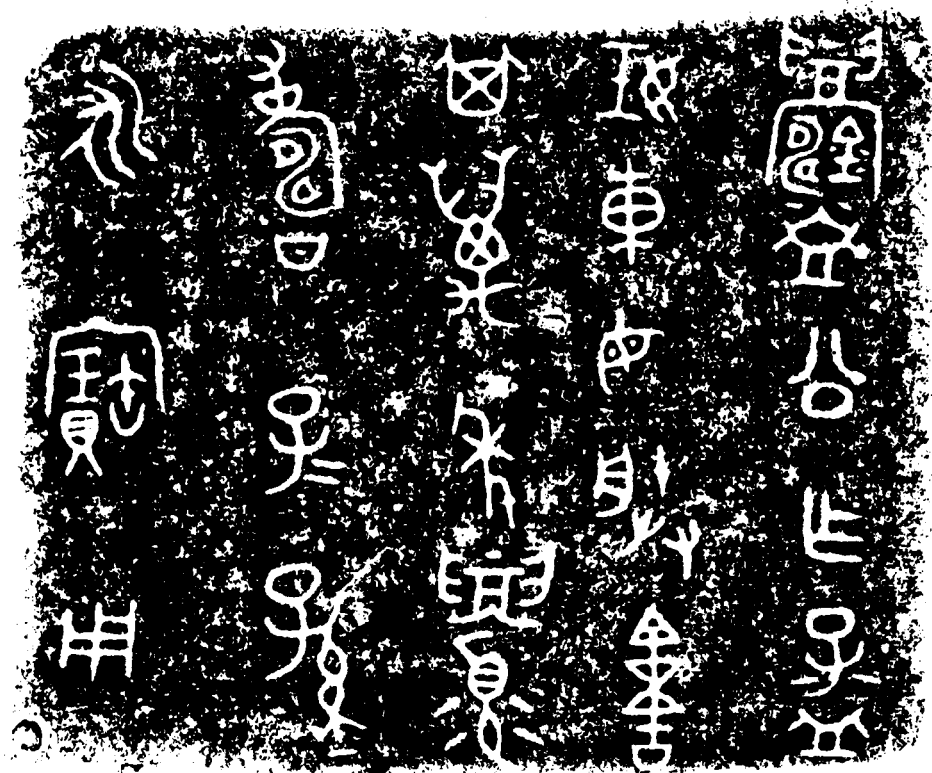 鑄公乍孟
妊車母朕𠤳
其萬年眉
壽子=孫=
永寶用